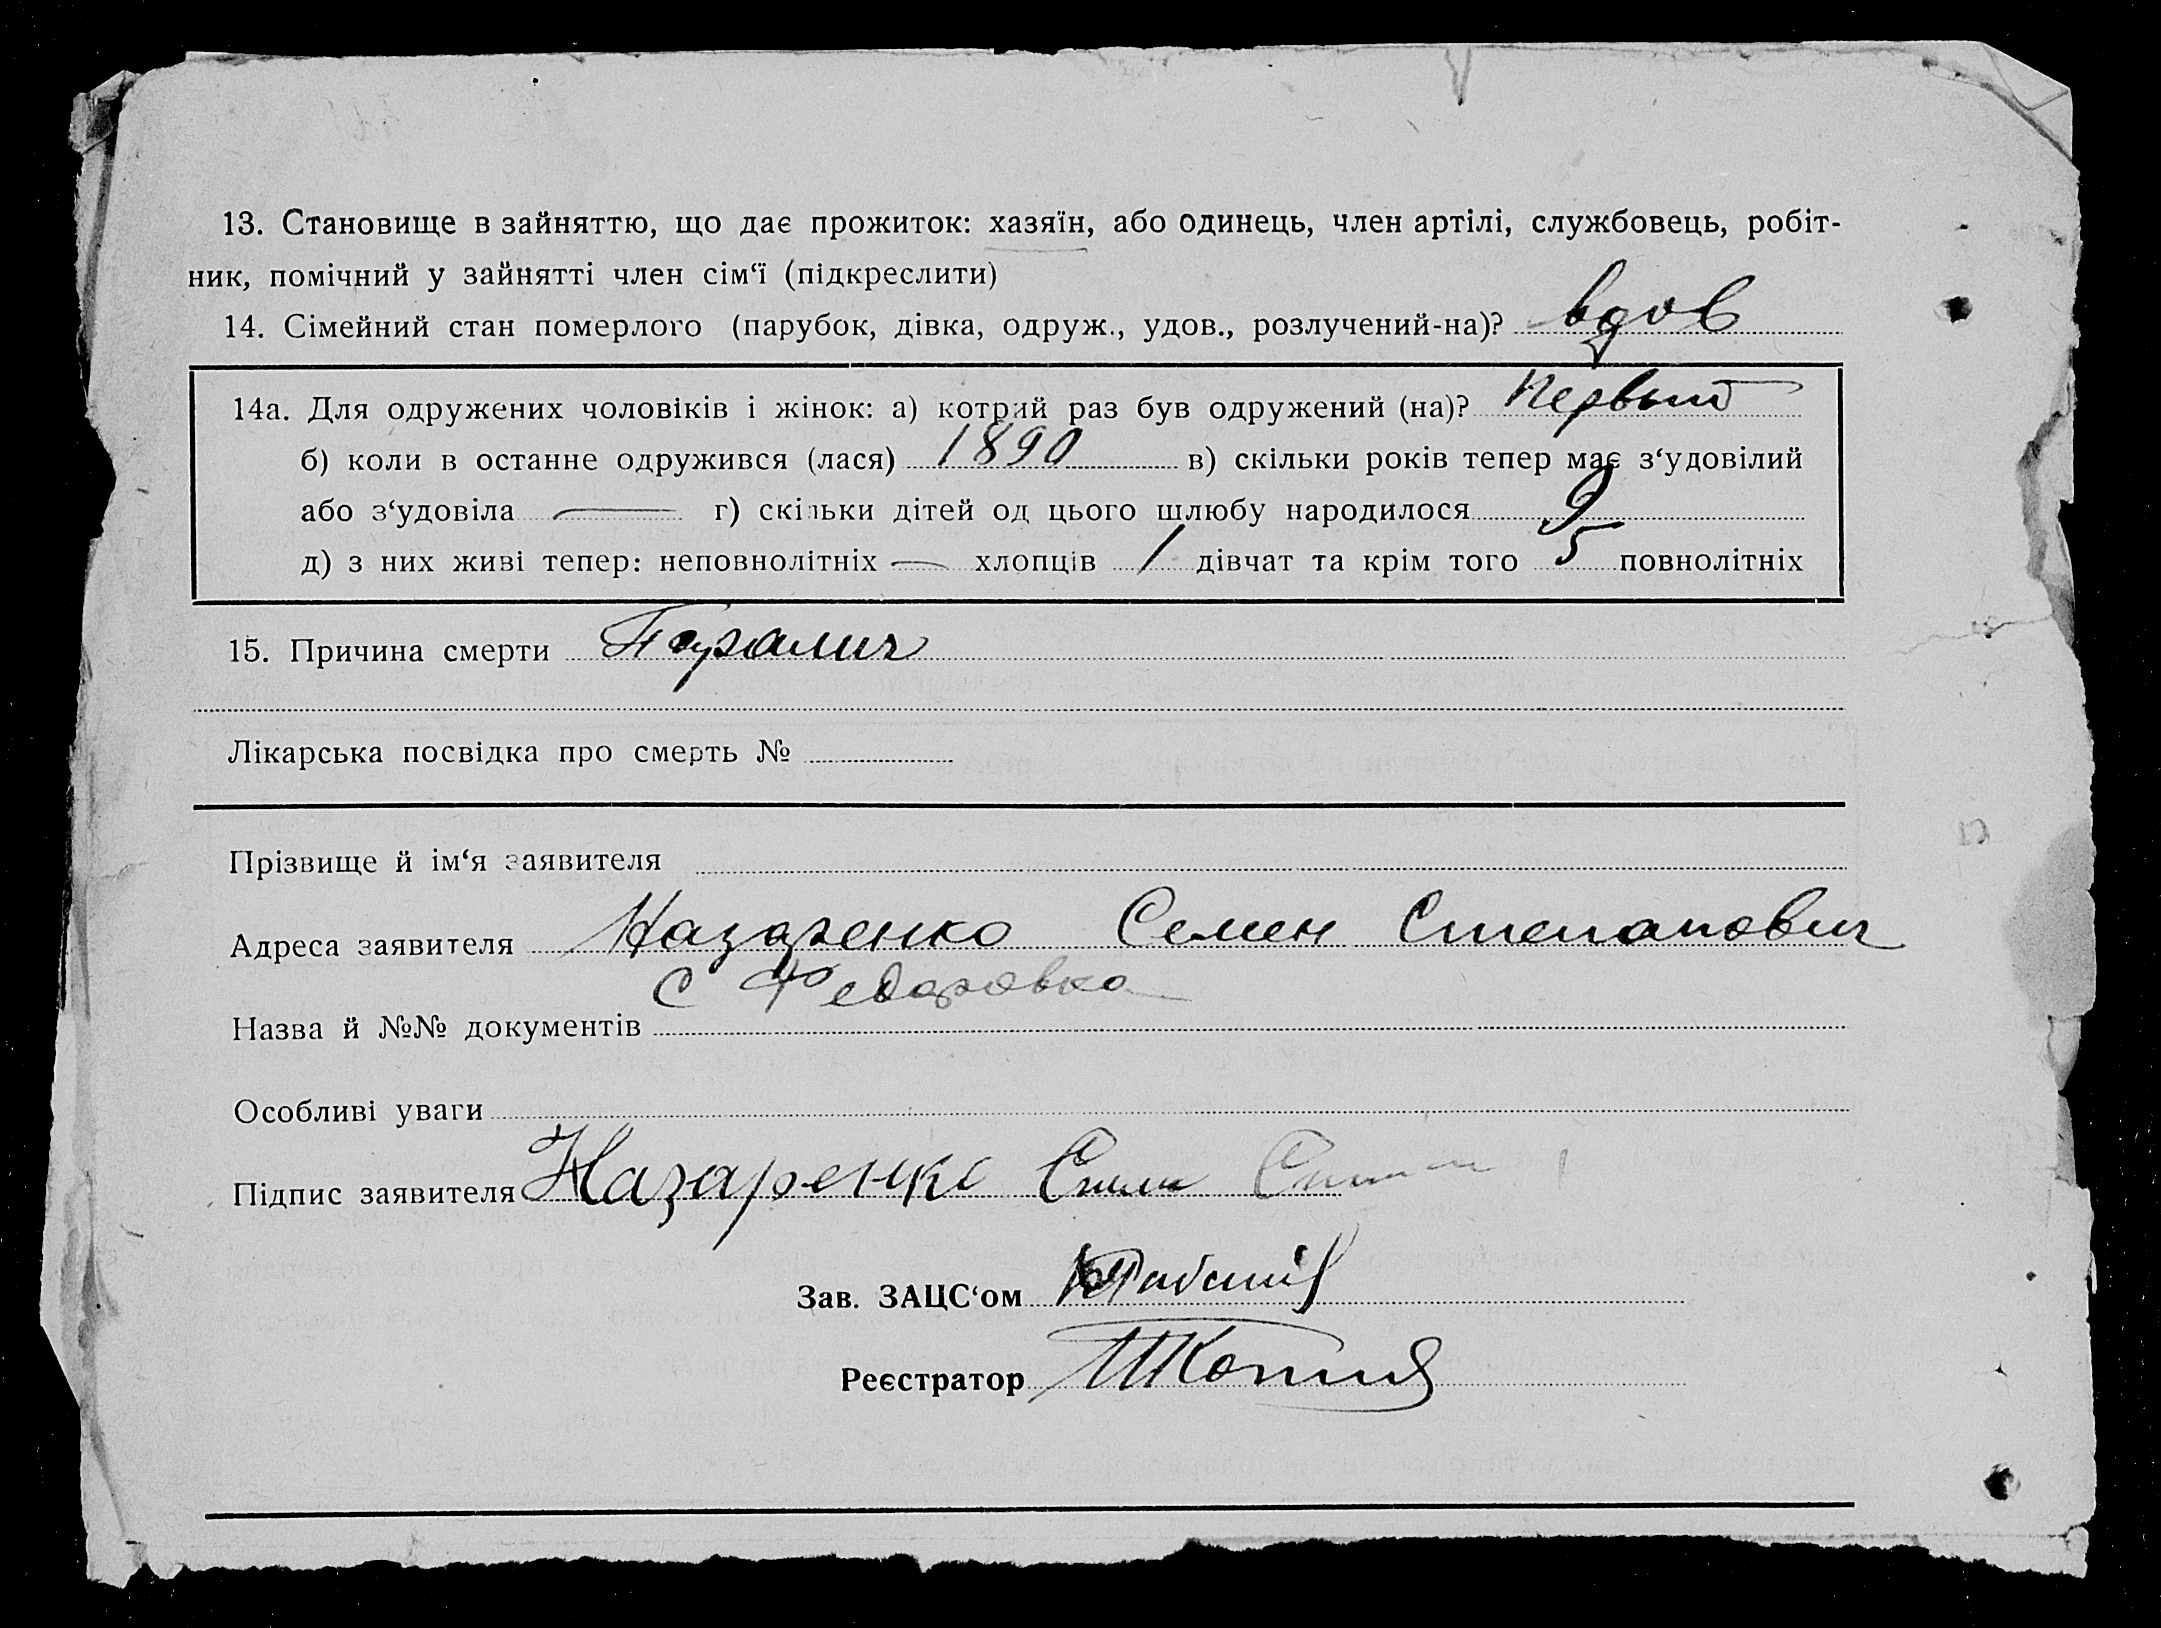 13. Становище в зайняттю, що дає прожиток: хазяїн, або одинець, член артілі, службовець, робіт-
ник, помічний у зайнятті член сім‘ї (підкреслити)
14. Сімейний стан померлого (парубок, дівка, одруж., удов., розлучений-на)? вдов
14а. Для одружених чоловіків і жінок: а) котрий раз був одружений (на)? Первый
б) коли в останне одружився (лася) 1890 в) скільки років тепер має з‘удовілий
або з‘удовіла — г) скільки дітей од цього шлюбу народилося 9
д) з них живі тепер: неповнолітніх — хлопців 1 дівчат та крім того 5 повнолітніх
15. Причина смерти Паралич
Лікарська посвідка про смерть №
Прізвище й ім‘я заявителя
Адреса заявителя Назаренко Семен Степанович
с Федоровка
Назва й №№ документів
Особливі уваги
Підпис заявителя Назаренко
Зав. ЗАЦС‘ом
Реєстратор